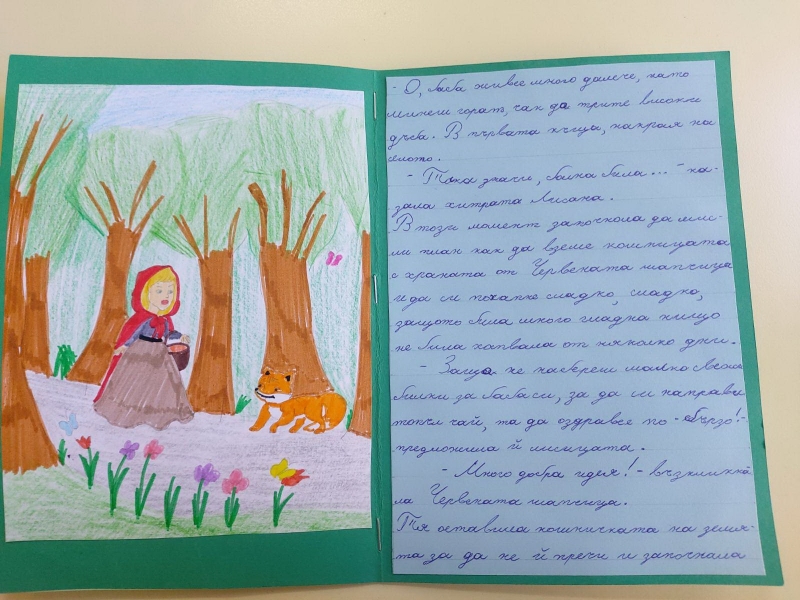 - О, баба живее много далече, като
минеш горат, чак до трите високи
дъба. В първата къща, накрая на
селото.
- Така значи, баика била... - ка-
зала хитрата Лисана.
В този момент започнала да мис-
ли план как да вземе кошницата
с храната от Червената шапчица
и да си похапне сладко, сладко,
защото била много гладна нищо
не била хапвала от няколко дни.
- Защо не набереш малко свежи
билки за баба си, за да си направи
топъл чай, та да оздравее по - бързо! -
предложила й лисицата.
- Много добра идея! - възкликна
ла Червената шапчица.
Тя оставила кошничката на земя-
та за да не й пречи и започнала